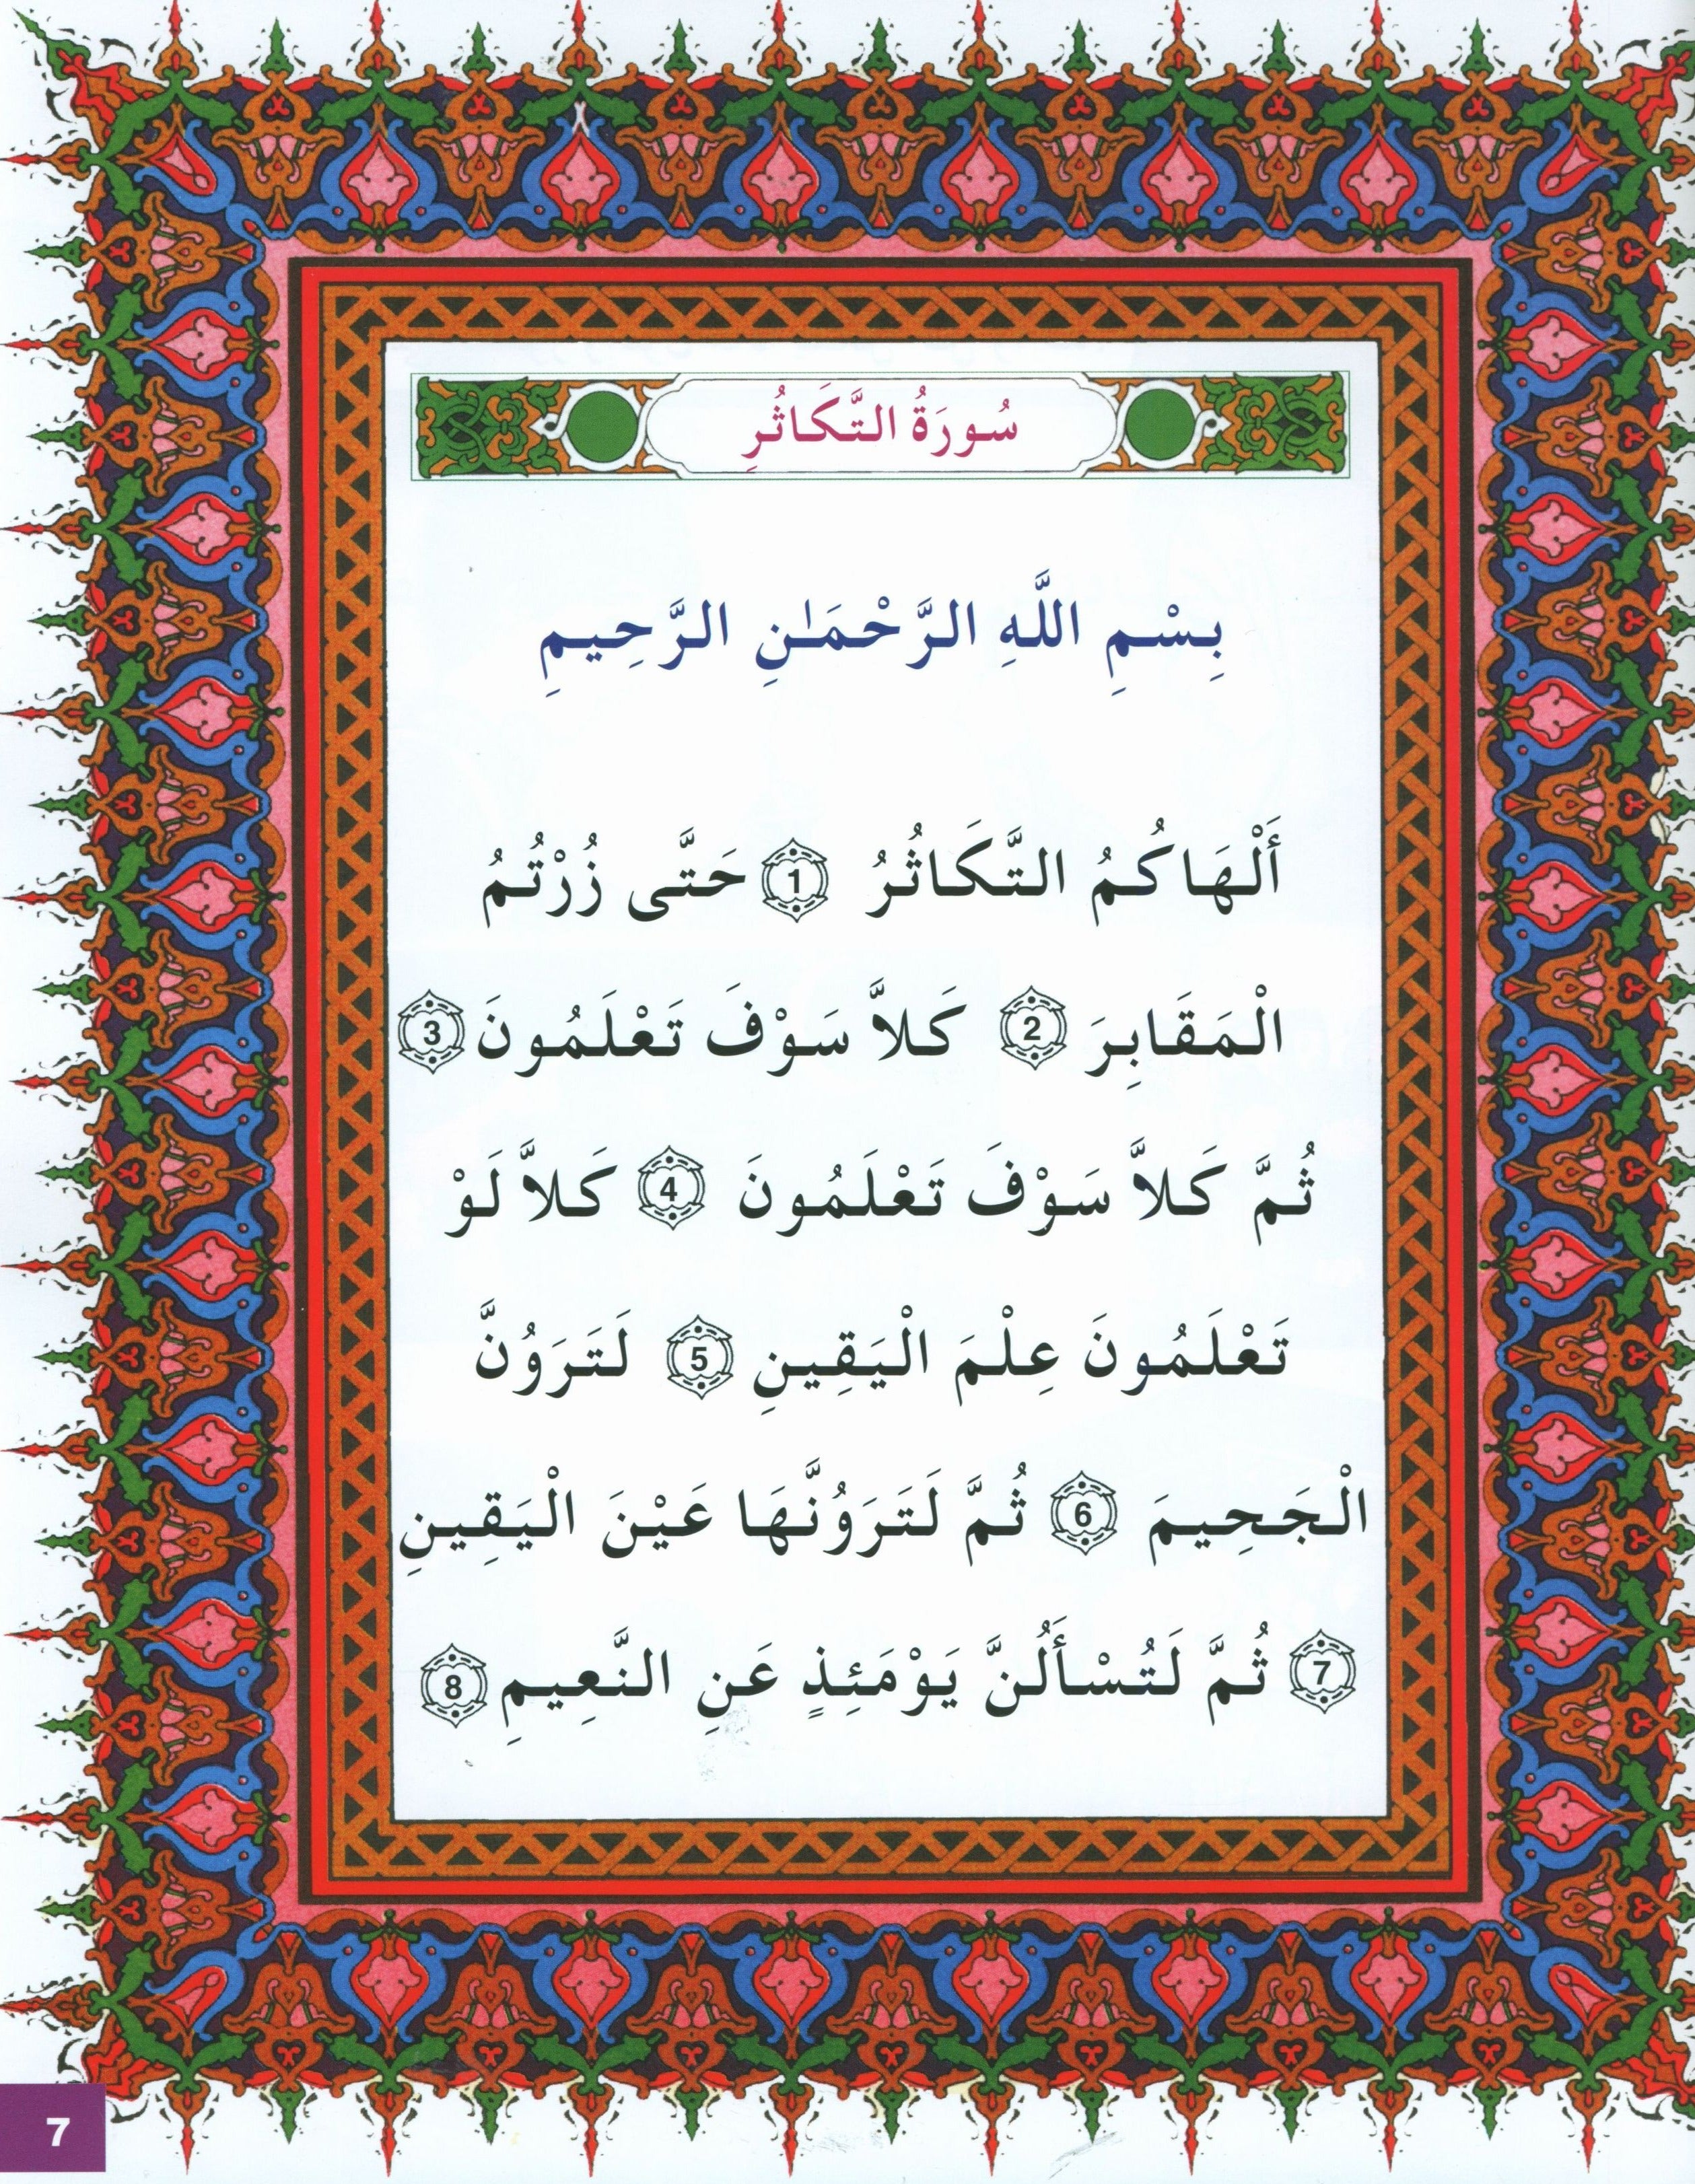 سُورَةُ التَّكَاثُرِ
بِسْمِ اللَّهِ الرَّحْمَٰنِ الرَّحِيمِ
أَلْهَاكُمُ التَّكَاثُرُ 1 حَتَّى زُرْتُمُ
الْمَقَابِرَ 2 كَلاَّ سَوْفَ تَعْلَمُونَ 3
ثُمَّ كَلاَّ سَوْفَ تَعْلَمُونَ 4 كَلاَّ لَوْ
تَعْلَمُونَ عِلْمَ الْيَقِينِ 5 لَتَرَوُنَّ
الْجَحِيمَ 6 ثُمَّ لَتَرَوُنَّهَا عَيْنَ الْيَقِينِ
7 ثُمَّ لَتُسْأَلُنَّ يَوْمَئِذٍ عَنِ النَّعِيمِ 8
7